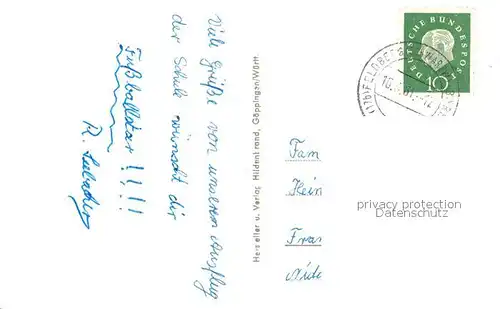 Viele Grüße von unserem Ausflug
der Schule wünscht dir
Fußballstar!!!!
R.
Hersteller u. Verlag Hildenbrand, Göppingen/Württ.
DEUTSCHE BUNDESPOST
10
(17b) FELDBERG
Fam
Hein
privacy protection
Datenschutz